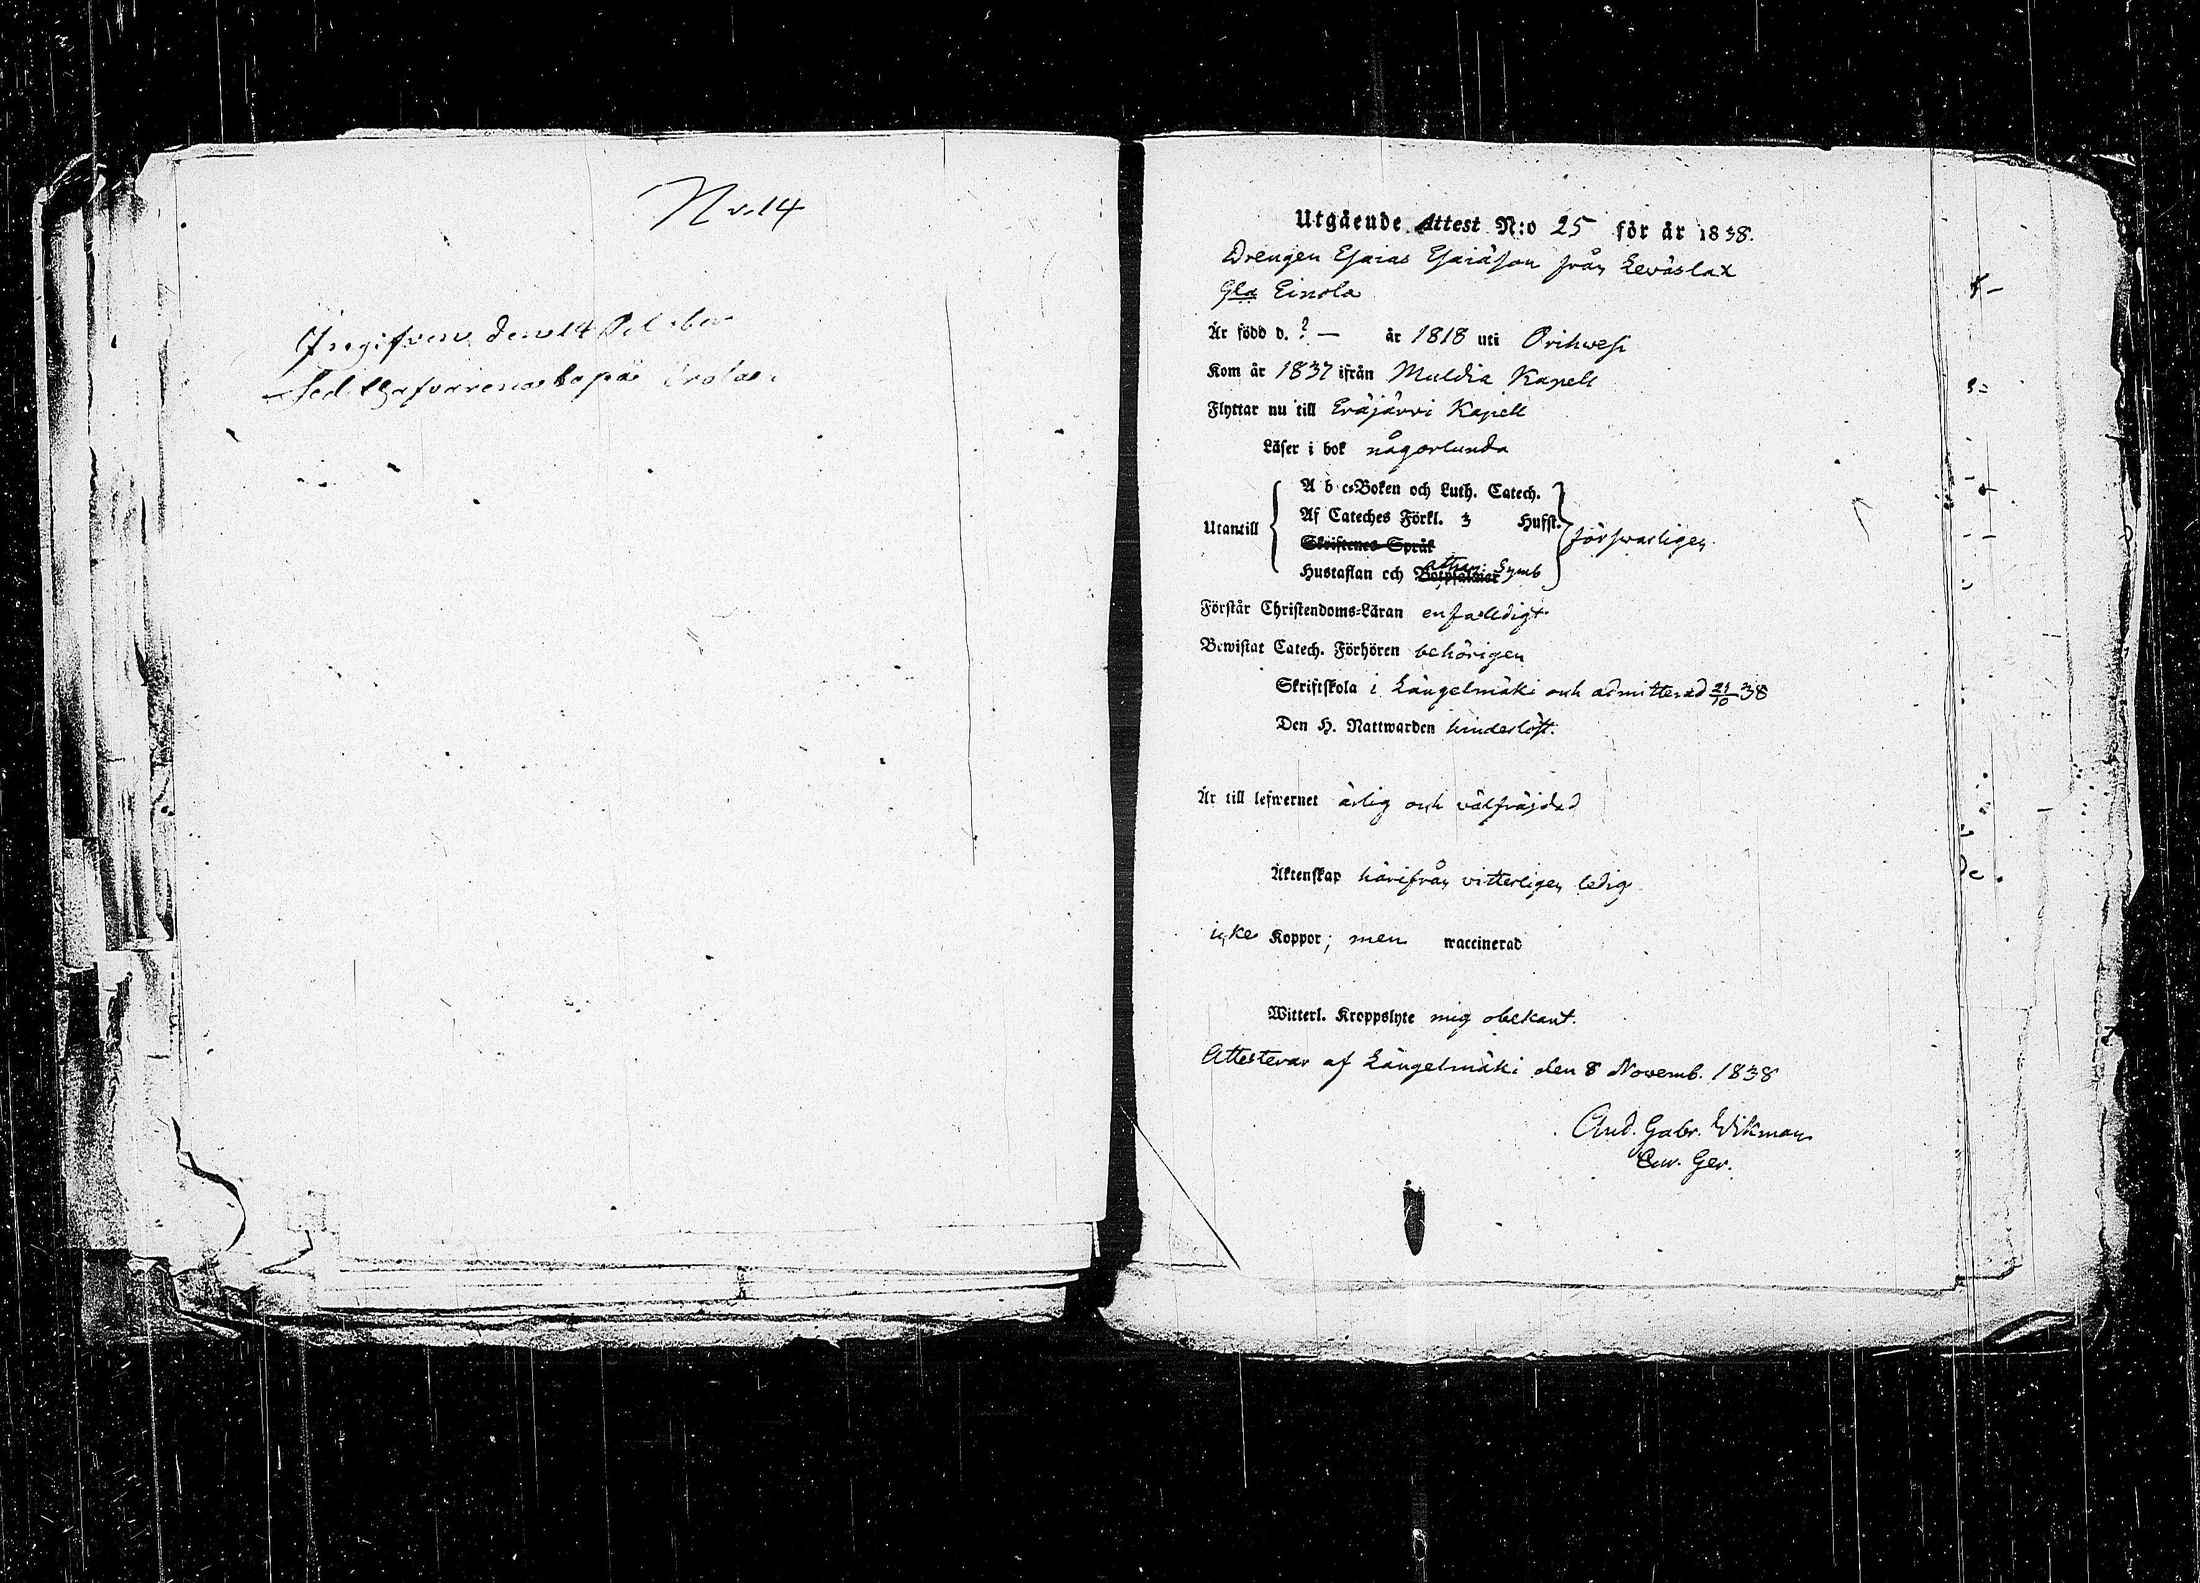 N:o 14
Ingifven den 14 October
på
Utgående Attest N:o 25 för år 1838.
Drengen Esaias Esaiäson från Lewäslax
Gla Einola
Är född d. ? — år 1818 uti Orihwesi
Kom år 1837 ifrån Muldia Kapell
Flyttar nu till Eräjärvi Kapell
Läser i bok någorlunda
A b c-Boken och Luth. Catech.
Af Cateches Förkl. 3 Hufst.
Utantill försvarligen
Skriftenes Språk
Hustaflan och Botpsalmer Athan: Symb
Förstår Christendoms-Läran enfaldigt
Bewistat Catech. Förhören behörigen
Skriftskola i Längelmäki och admitterad 21/10 38
Den H. Nattwarden hinderlöst.
Är till lefwernet ärlig och välfräjdad
Äktenskap härifrån vitterligen ledig
icke Koppor; men waccinerad
Witterl. Kroppslyte mig obekant.
Attesterar af Längelmäki den 8 Novemb. 1838
And. Gabr. Wikman